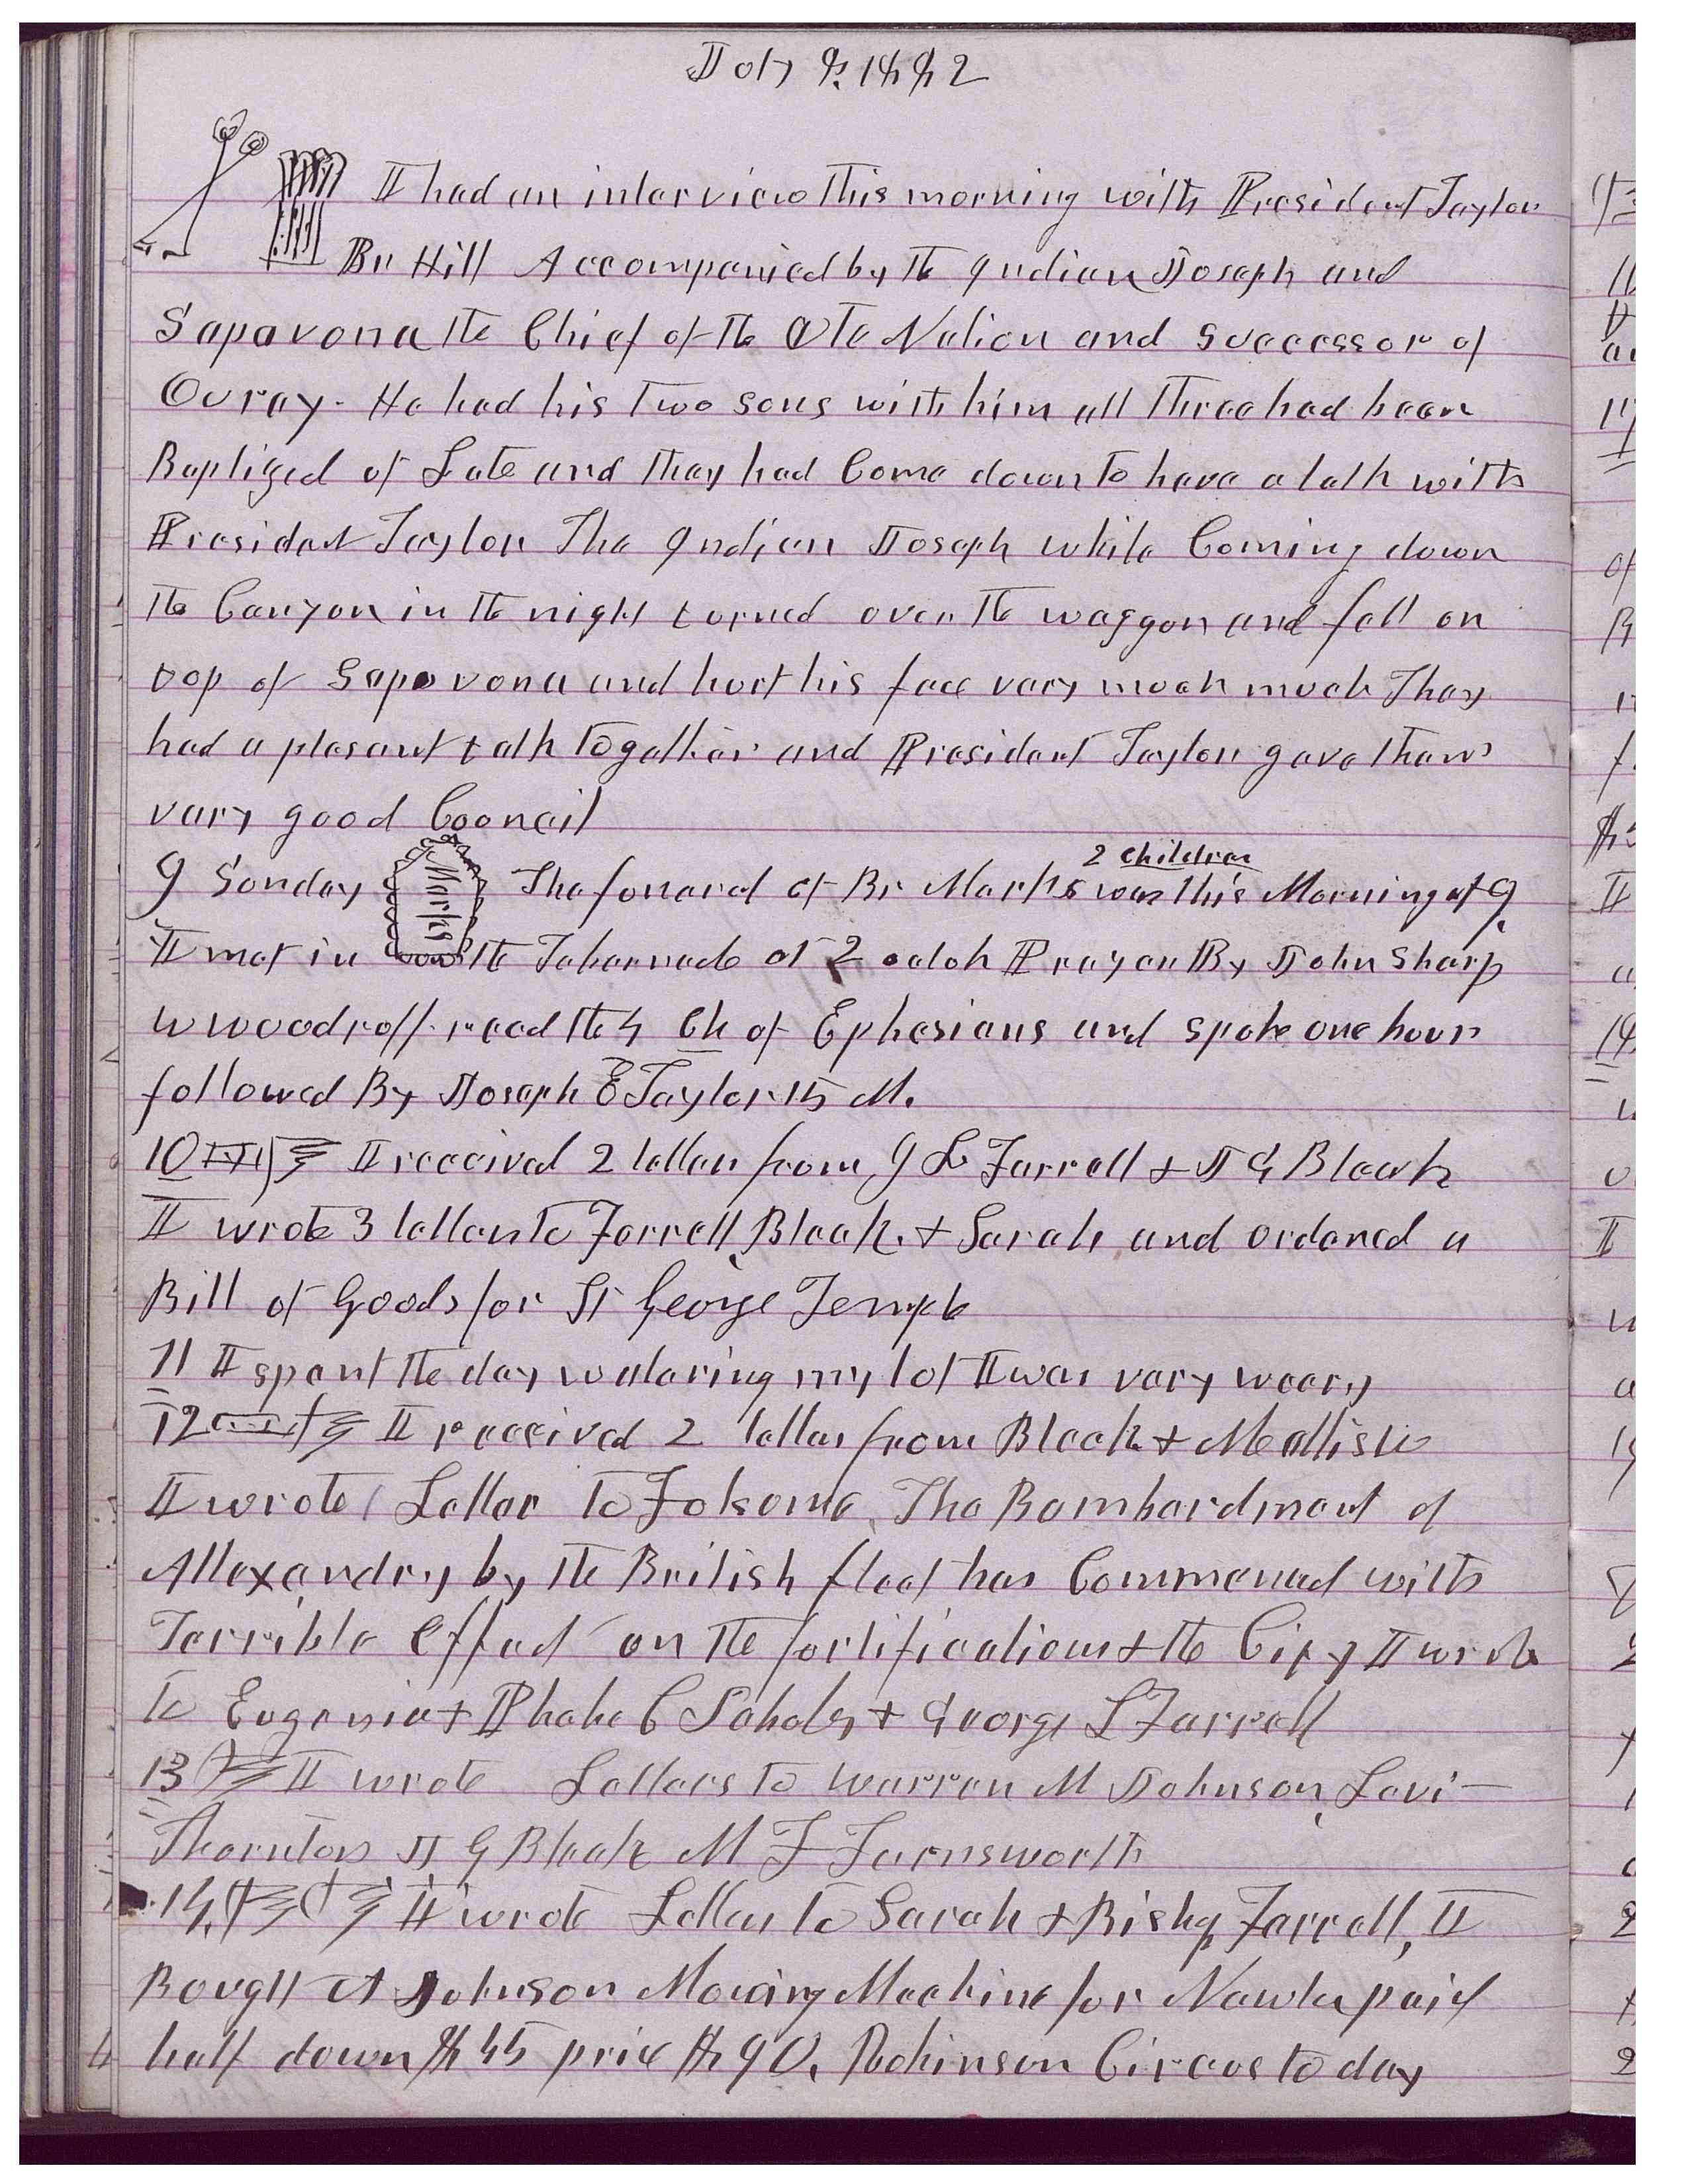 July 8, 1882
I had an interview this morning with President Taylor
Br Hill Accompanied by the Indian Joseph and
Sapavona the Chief of the Ute Nation and Successor of
Ouray. He had his two sons with him all three had been
Baptized of Late and they had Come down to have a talk with
President Taylor The Indian Joseph while Coming down
the Canyon in the night turned over the waggon and fell on
top of Sapovona and hurt his face very much much They
had a plesant talk together and President Taylor gave them
vary good Council
2 children
9 Sunday Marks The funeral of Br Marks was this Morning at 9
I met in the Tabernacle at 2 oclok Prayer By John Sharp
W Woodruff read the 4 Ch of Ephesians and spoke one hour
followed By Joseph E Taylor 45 M.
10 I received 2 letters from G L Farrell & J G Bleak
I wrote 3 letters to Farrell, Bleak, & Sarah and ordered a
Bill of Goods for St George Temple
11 I spent the day watering my lot I was very weary
12 I received 2 letters from Bleak & McAllister
I wrote 1 Letter to Folsome, The Bombardment of
Allexandry by the British fleet has Commenced with
Terrible Effect on the fortifications & the City I wrote
to Eugenia & Phebe C Scholes & George L Farrell
13 I wrote Letters to Warren M Johnson, Levi
Thornton J G Bleak M F Farnsworth
14, I wrote Letters to Sarah & Bishop Farrell, I
Bought A Johnson Mowing Machine for Newton paid
half down $45 price $90. Robinson Circus to day